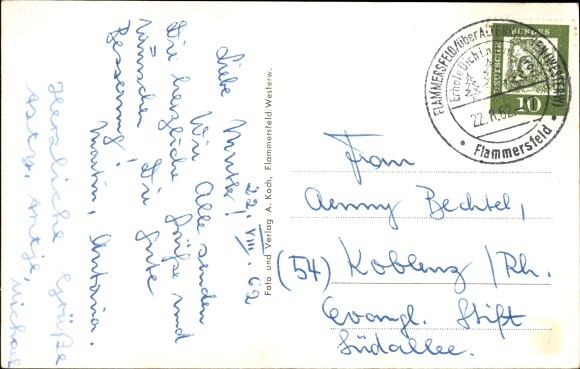 22. VIII. 62
Liebe Mutter!
Wir Alle senden
Dir herzliche Grüße und
wünschen Dir gute
Besserung!
Martin, Antonia.
Herzliche Grüße
Antje,
Michael
Foto und Verlag A. Koch, Flammersfeld Westerw.
FLAMMERSFELD/über ALTENKIRCHEN (WESTERW)
Erhole Dich in
22.8.62
Flammersfeld
DEUTSCHE BUNDESPOST
10
Frau
Aenny Bechtel,
(54) Koblenz /Rh.
Evangl. Stift
Südallee.